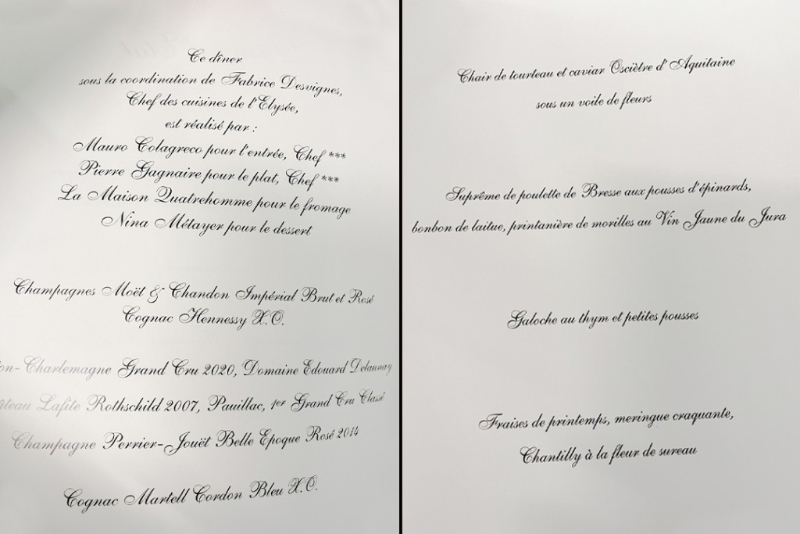 Ce dîner
sous la coordination de Fabrice Desvignes,
Chef des cuisines de l'Elysée,
est réalisé par :
Mauro Colagreco pour l'entrée, Chef ***
Pierre Gagnaire pour le plat, Chef ***
La Maison Quatrehomme pour le fromage
Nina Métayer pour le dessert
Champagnes Moët & Chandon Impérial Brut et Rosé
Cognac Hennessy X.O.
on-Charlemagne Grand Cru 2020, Domaine Edouard Delaunay
âteau Lafite Rothschild 2007, Pauillac, 1er Grand Cru Classé
Champagne Perrier-Jouët Belle Epoque Rosé 2014
Cognac Martell Cordon Bleu X.O.
Chair de tourteau et caviar Osciètre d'Aquitaine
sous un voile de fleurs
Suprême de poulette de Bresse aux pousses d'épinards,
bonbon de laitue, printanière de morilles au Vin Jaune du Jura
Galoche au thym et petites pousses
Fraises de printemps, meringue craquante,
Chantilly à la fleur de sureau